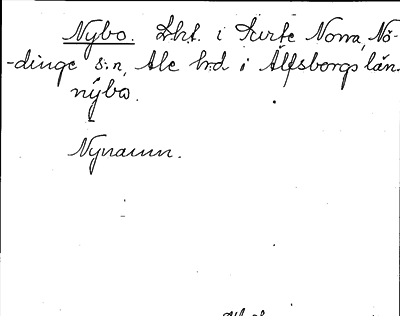 Nybo. Lht. i Surte Norra, Nö-
-dinge s:n, Ale hrd i Älfsborgs län.
nýbo.
Nynamn.